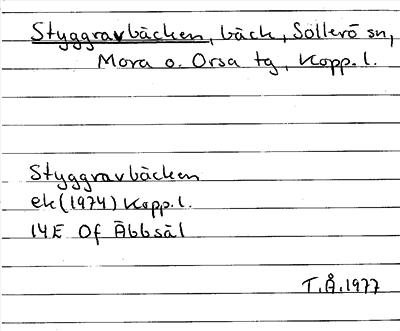 Styggravbäcken, bäck, Sollerö sn,
Mora o. Orsa tg, Kopp.l.
Styggravbäcken
ek(1974) Kopp.l.
14E 0f Åbbsäl
T.Å.1977